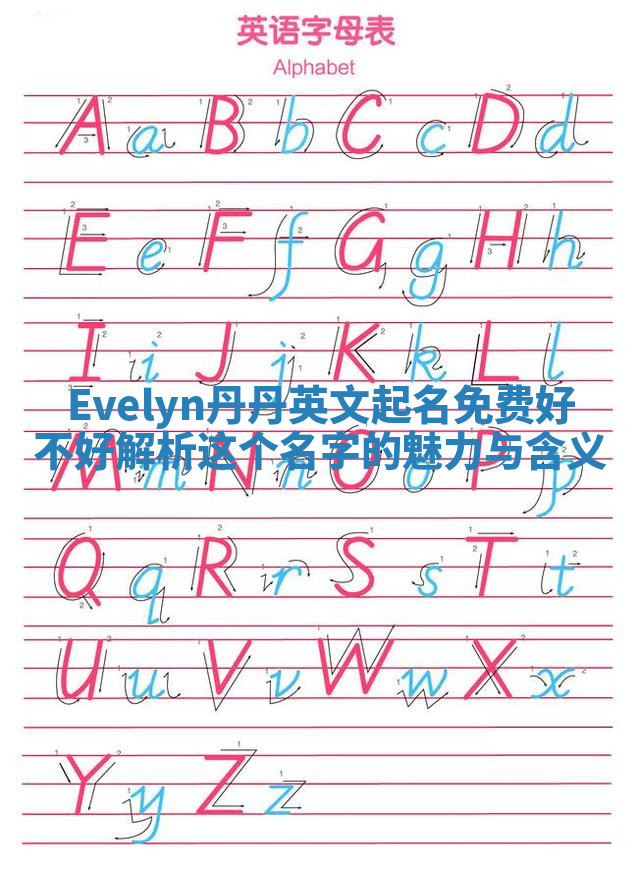 英语字母表
Alphabet
A a B b C c D d
E e F f G g H h
I i J j K k L l
Evelyn丹丹英文起名免费好
不好解析这个名字的魅力与含义
M m N n O o P p
Q q R r S s T t
U u V v W w X x
Y y Z z